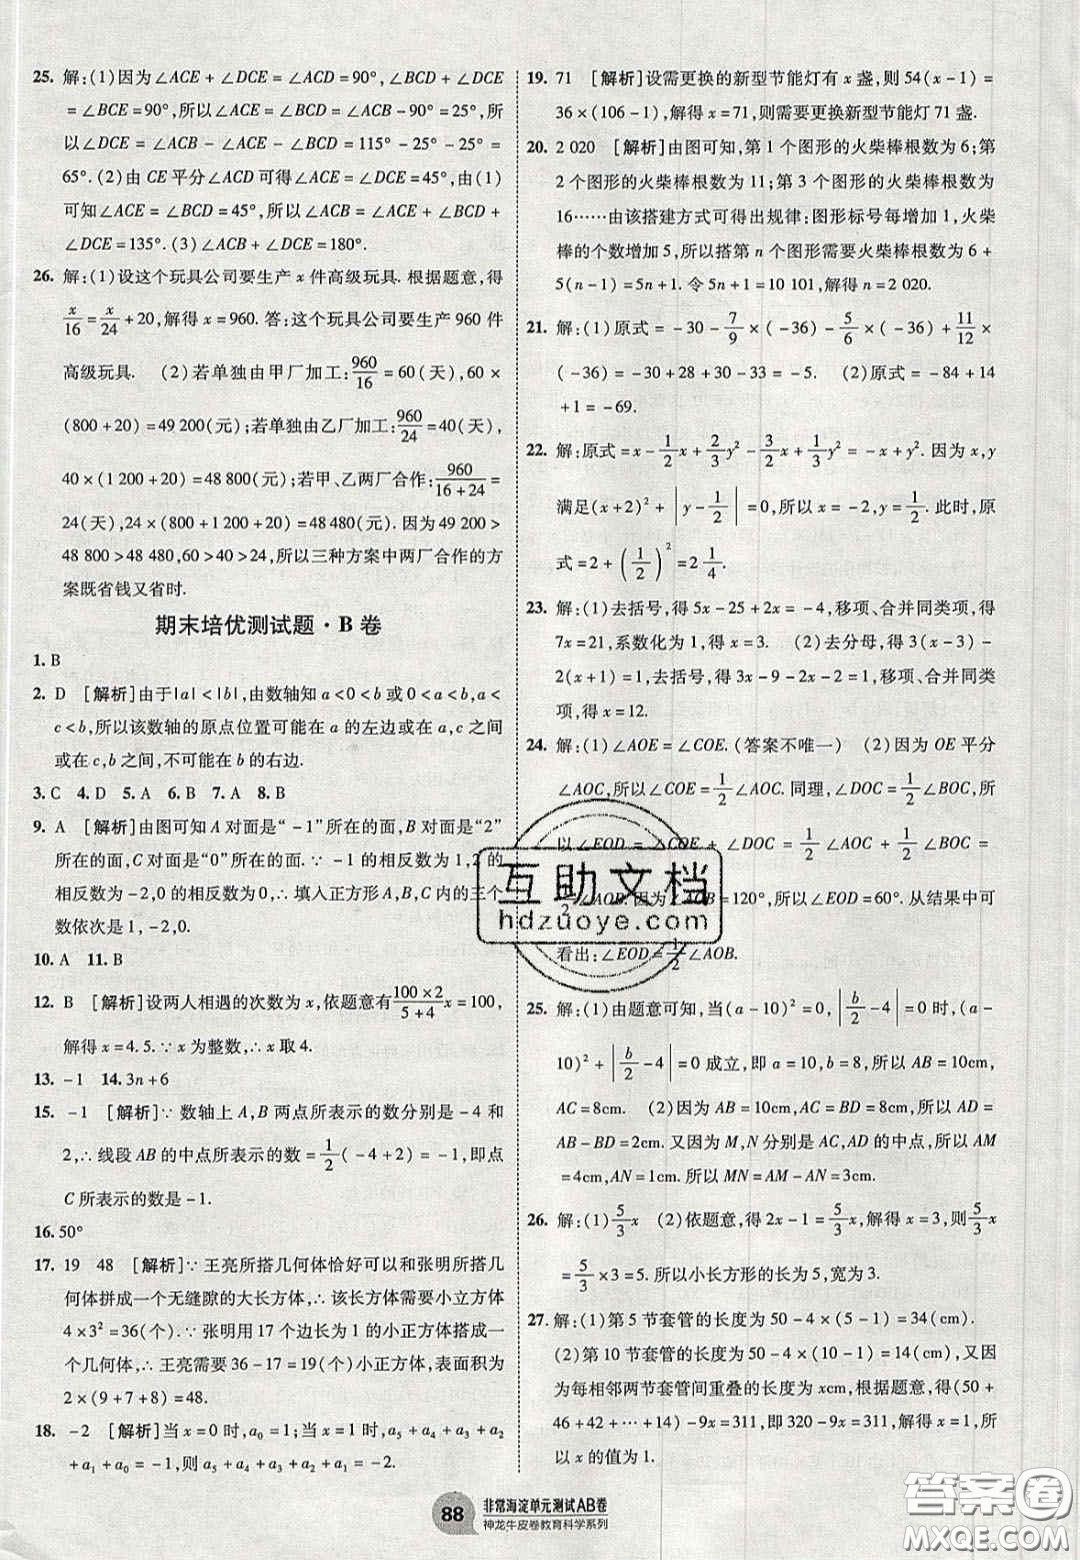 25. 解:(1)因为∠ACE + ∠DCE = ∠ACD = 90°, ∠BCD + ∠DCE
= ∠BCE = 90°,所以∠ACE = ∠BCD = ∠ACB - 90° = 25°,所
以∠DCE = ∠ACB - ∠ACE - ∠BCD = 115° - 25° - 25° =
65°. (2)由 CE 平分∠ACD 可得∠ACE = ∠DCE = 45°,由(1)
可知∠ACE = ∠BCD = 45°,所以∠ACB = ∠ACE + ∠BCD +
∠DCE = 135°. (3)∠ACB + ∠DCE = 180°.
26. 解:(1)设这个玩具公司要生产 x 件高级玩具. 根据题意,得
x/16 = x/24 + 20,解得 x = 960. 答:这个玩具公司要生产 960 件
高级玩具. (2)若单独由甲厂加工: 960/16 = 60(天),60 ×
(800 + 20) = 49 200(元);若单独由乙厂加工: 960/24 = 40(天),
40 × (1 200 + 20) = 48 800(元);若甲、乙两厂合作: 960/(16 + 24) =
24(天),24 × (800 + 1 200 + 20) = 48 480(元). 因为 49 200 >
48 800 > 48 480,60 > 40 > 24,所以三种方案中两厂合作的方
案既省钱又省时.
期末培优测试题 · B 卷
1. B
2. D [解析]由于|a| < |b|,由数轴知 a < 0 < b 或 0 < a < b,a <
c < b,所以该数轴的原点位置可能在 a 的左边或在 a,c 之间
或在 c,b 之间,不可能在 b 的右边.
3. C 4. D 5. A 6. B 7. A 8. B
9. A [解析]由图可知 A 对面是“ -1”所在的面,B 对面是“2”
所在的面,C 对面是“0”所在的面. ∵ -1 的相反数为 1,2 的
相反数为 -2,0 的相反数为 0,∴ 填入正方形 A,B,C 内的三个
数依次是 1, -2,0.
10. A 11. B
12. B [解析]设两人相遇的次数为 x,依题意有 (100 × 2)/(5 + 4) x = 100,
解得 x = 4.5. ∵ x 为整数,∴ x 取 4.
13. -1 14. 3n + 6
15. -1 [解析]∵ 数轴上 A,B 两点所表示的数分别是 -4 和
2,∴ 线段 AB 的中点所表示的数 = 1/2 ( -4 + 2) = -1,即点
C 所表示的数是 -1.
16. 50°
17. 19 48 [解析]∵ 王亮所搭几何体恰好可以和张明所搭几
何体拼成一个无缝隙的大长方体,∴ 该长方体需要小立方体
4 × 3² = 36(个). ∵ 张明用 17 个边长为 1 的小正方体搭成了
一个几何体,∴ 王亮需要 36 - 17 = 19(个)小正方体,表面积为
2 × (9 + 7 + 8) = 48.
18. -2 [解析]当 x = 0 时,a₀ = 1;当 x = 1 时,a₅ + a₄ + a₃ + a₂
+ a₁ + a₀ = -1,则 a₅ + a₄ + a₃ + a₂ + a₁ = -2.
19. 71 [解析]设需更换的新型节能灯有 x 盏,则 54(x - 1) =
36 × (106 - 1),解得 x = 71,则需要更换新型节能灯 71 盏.
20. 2 020 [解析]由图可知,第 1 个图形的火柴棒根数为 6;第
2 个图形的火柴棒根数为 11;第 3 个图形的火柴棒根数为
16……由该搭建方式可得出规律:图形标号每增加 1,火柴
棒的个数增加 5,所以搭第 n 个图形需要火柴棒根数是 6 +
5(n - 1) = 5n + 1. 令 5n + 1 = 10 101,解得 n = 2 020.
21. 解:(1)原式 = -30 - 7/9 × ( -36) - 5/6 × ( -36) + 11/12 ×
( -36) = -30 + 28 + 30 - 33 = -5. (2)原式 = -84 + 14
+ 1 = -69.
22. 解:原式 = x - 1/2 x + 2/3 y² - 3/2 x + 1/3 y² = -x + y². 因为 x,y
满足(x + 2)² + |y - 1/2| = 0,所以 x = -2,y = 1/2. 此时,原
式 = 2 + (1/2)² = 2 1/4.
23. 解:(1)去括号,得 5x - 25 + 2x = -4,移项、合并同类项,得
7x = 21,系数化为 1,得 x = 3. (2)去分母,得 3(x - 3) -
2(x + 1) = 1,去括号,得 3x - 9 - 2x - 2 = 1,移项、合并同类
项,得 x = 12.
24. 解:(1)∠AOE = ∠COE. (答案不唯一) (2)因为 OE 平分
∠AOC,所以∠COE = 1/2 ∠AOC. 同理,∠DOC = 1/2 ∠BOC,所
以∠EOD = ∠COE + ∠DOC = 1/2 ∠AOC + 1/2 ∠BOC =
1/2 ∠AOB. 因为∠AOB = 120°,所以∠EOD = 60°. 从结果中可
看出:∠EOD = 1/2 ∠AOB.
25. 解:(1)由题意可知,当(a - 10)² = 0, |b/2 - 4| = 0 时,(a -
10)² + |b/2 - 4| = 0 成立,即 a = 10,b = 8,所以 AB = 10cm,
AC = 8cm. (2)因为 AB = 10cm,AC = BD = 8cm,所以 AD =
AB - BD = 2cm. 又因为 M,N 分别是 AC,AD 的中点,所以 AM
= 4cm,AN = 1cm. 所以 MN = AM - AN = 3cm.
26. 解:(1) 5/3 x (2)依题意,得 2x - 1 = 5/3 x,解得 x = 3,则 5/3 x
= 5/3 × 3 = 5. 所以小长方形的长为 5,宽为 3.
27. 解:(1)第 5 节套管的长度为 50 - 4 × (5 - 1) = 34(cm).
(2)第 10 节套管的长度为 50 - 4 × (10 - 1) = 14(cm),又因
为每相邻两节套管间重叠的长度为 xcm,根据题意,得(50 +
46 + 42 + … + 14) - 9x = 311,即 320 - 9x = 311,解得 x = 1,所
以 x 的值为 1.
互助文档
hdzuoye.com
88
非常海淀单元测试AB卷
神龙牛皮卷教育科学系列
答案圈
MXQE.COM